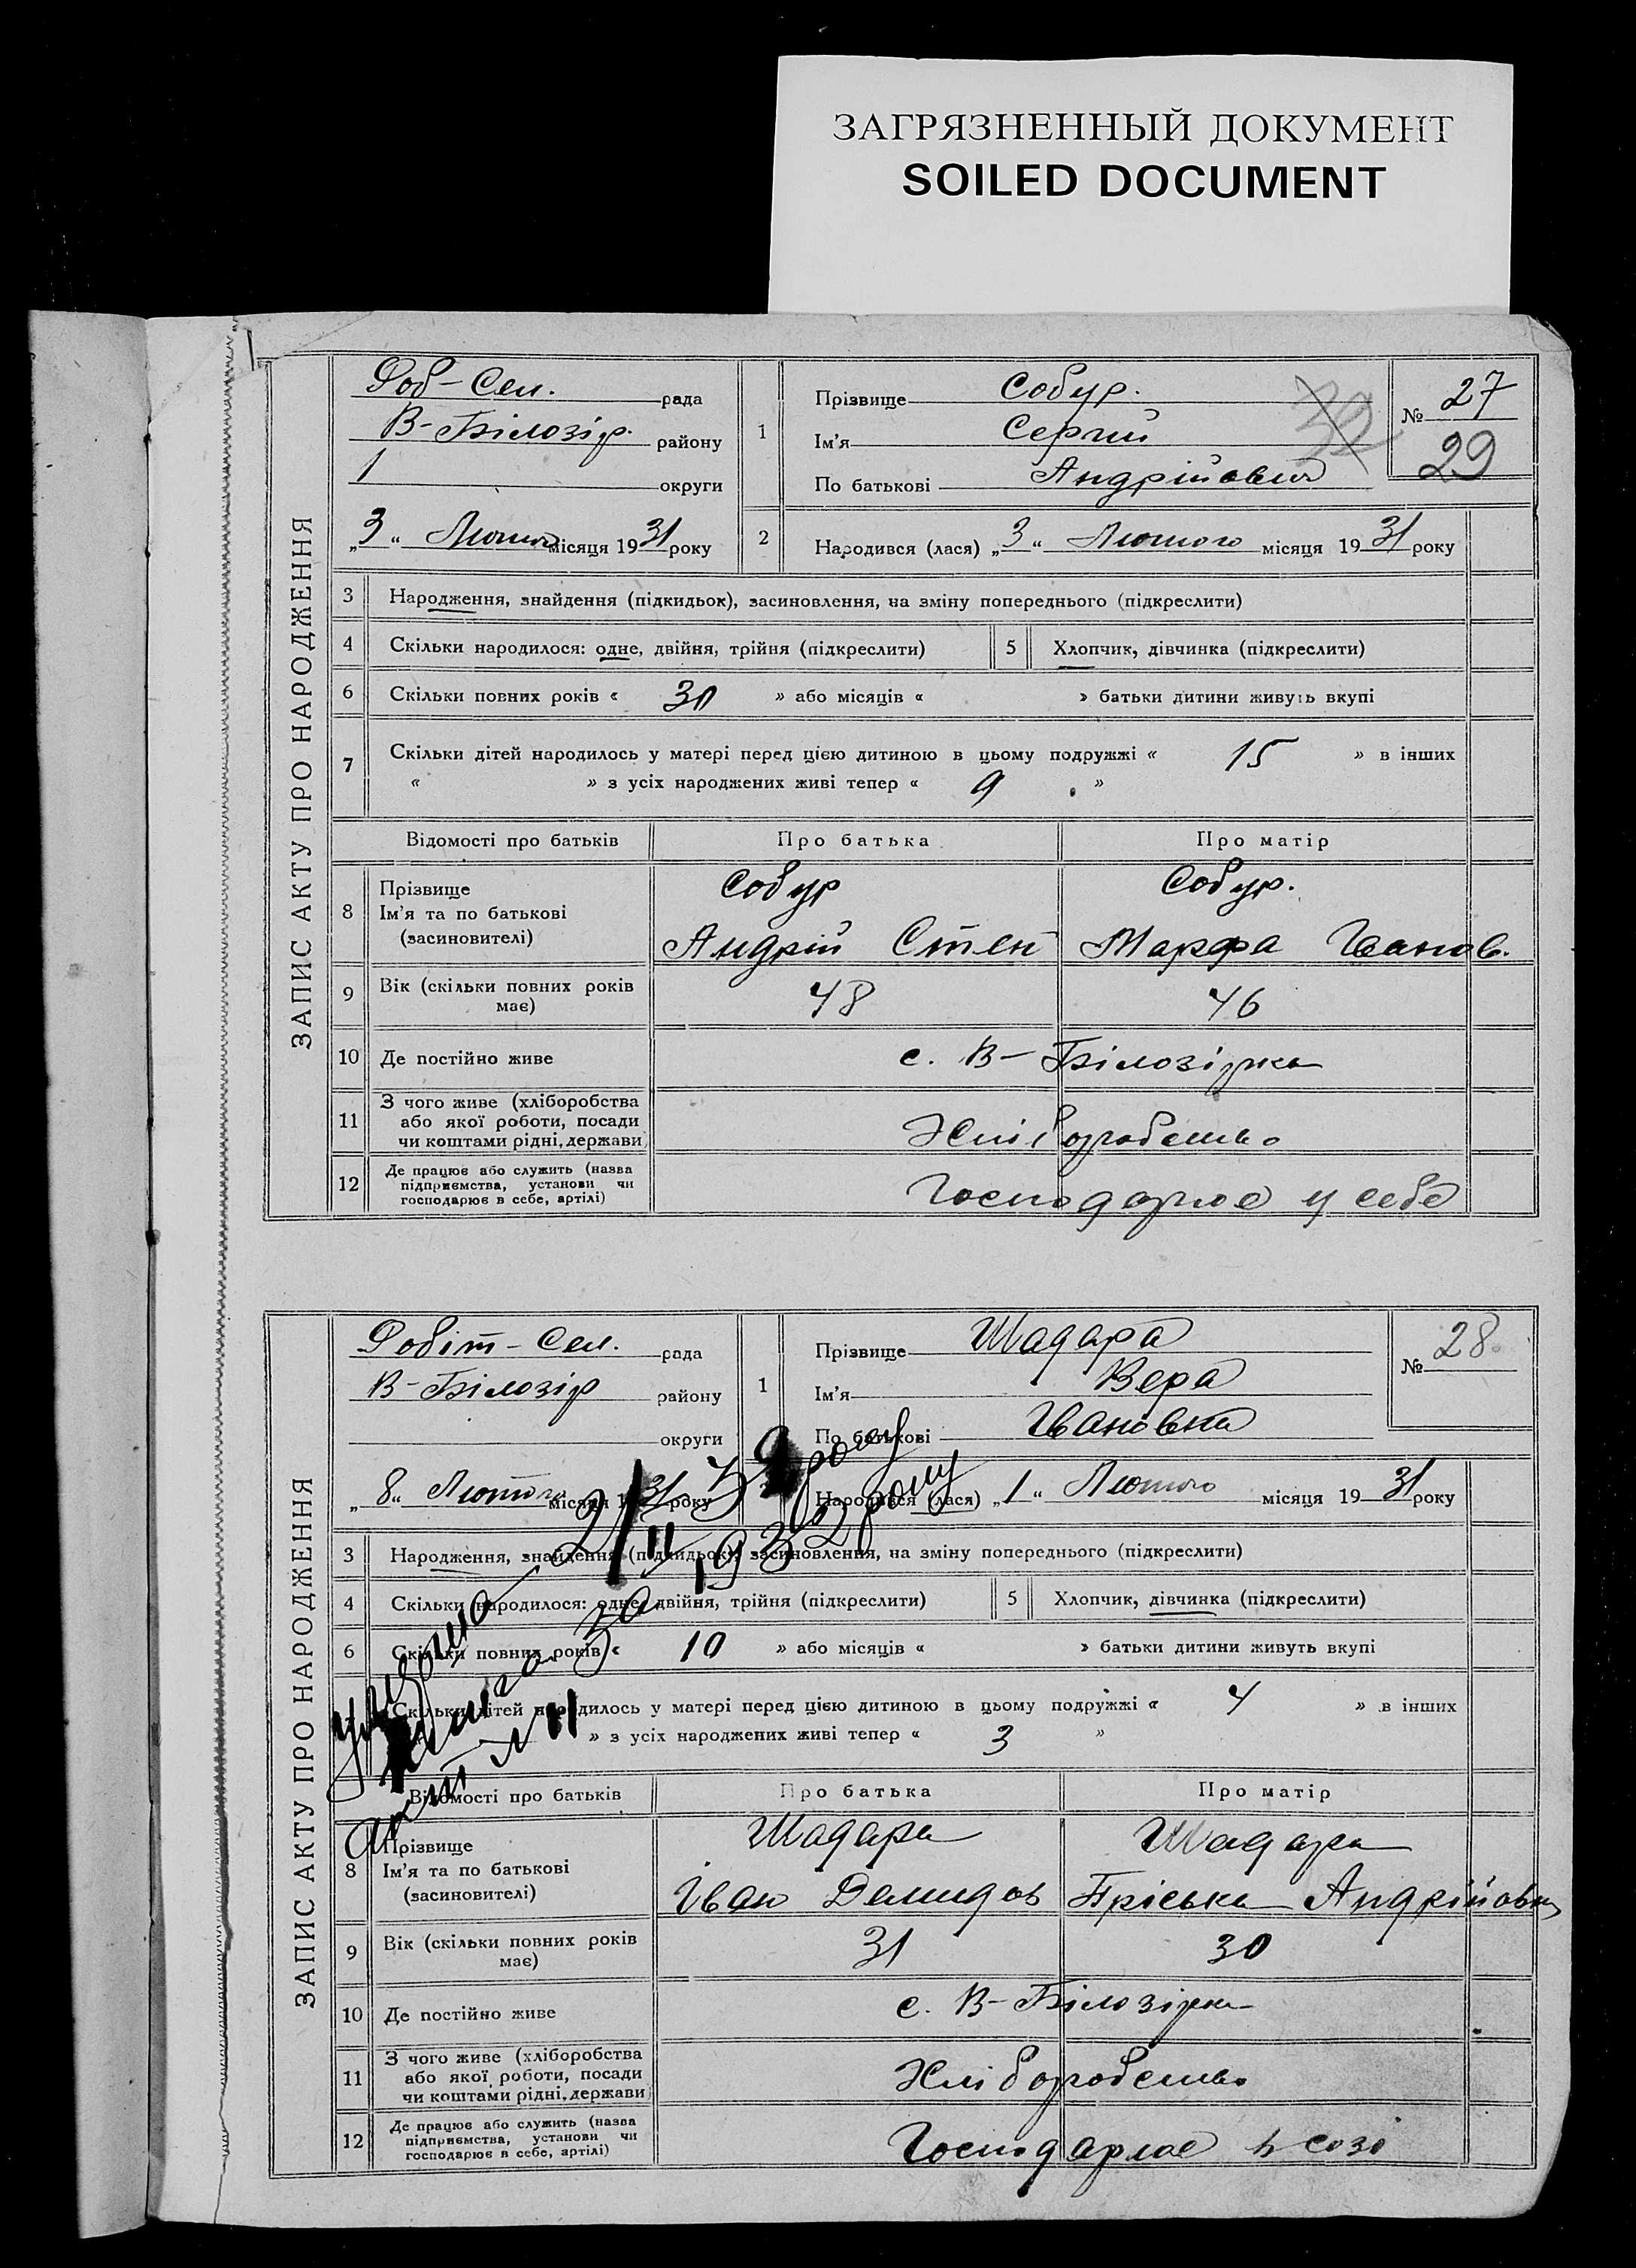 ЗАГРЯЗНЕННЫЙ ДОКУМЕНТ
SOILED DOCUMENT
ЗАПИС АКТУ ПРО НАРОДЖЕННЯ
Роб-Сел. рада
В-Білозір. району
1 округи
„3“ Лютого місяця 1931 року
1
Прізвище Собур.
Ім'я Сергий
По батькові Андрійович
32
№ 27
29
2 Народився (лася) „3“ Лютого місяця 1931 року
3 Народження, знайдення (підкидьок), засиновлення, на зміну попереднього (підкреслити)
4 Скільки народилося: одне, двійня, трійня (підкреслити) 5 Хлопчик, дівчинка (підкреслити)
6 Скільки повних років « 30 » або місяців « » батьки дитини живуть вкупі
7 Скільки дітей народилось у матері перед цією дитиною в цьому подружжі « 15 » в інших
« » з усіх народжених живі тепер « 9 »
Відомості про батьків Про батька Про матір
8 Прізвище Собур Собур.
Ім'я та по батькові
(засиновителі) Андрій Степ Марфа Іванов.
9 Вік (скільки повних років має) 48 46
10 Де постійно живе с. В-Білозірка
11 З чого живе (хліборобства
або якої роботи, посади
чи коштами рідні, держави) Хліборобство
12 Де працює або служить (назва
підприємства, установи чи
господарює в себе, артілі) Господарює у себе
ЗАПИС АКТУ ПРО НАРОДЖЕННЯ
Робіт-Сел. рада
В-Білозір району
округи
„8“ Лютого місяця 1931 року
1
Прізвище Шадара
Ім'я Вера
По батькові Івановна
№ 28
Народився (лася) „1“ Лютого місяця 1931 року
3 Народження, знайдення (підкидьок), засиновлення, на зміну попереднього (підкреслити)
4 Скільки народилося: одне, двійня, трійня (підкреслити) 5 Хлопчик, дівчинка (підкреслити)
6 Скільки повних років « 10 » або місяців « » батьки дитини живуть вкупі
Скільки дітей народилось у матері перед цією дитиною в цьому подружжі « 4 » в інших
» з усіх народжених живі тепер « 3 »
2/II року
книга за 1932 року
акт № 11
Відомості про батьків Про батька Про матір
8 Прізвище Шадара Шадара
Ім'я та по батькові
(засиновителі) Іван Демидов Пріська Андрійовна
9 Вік (скільки повних років має) 31 30
10 Де постійно живе с. В-Білозірка
11 З чого живе (хліборобства
або якої роботи, посади
чи коштами рідні, держави) Хліборобство
12 Де працює або служить (назва
підприємства, установи чи
господарює в себе, артілі) Господарює